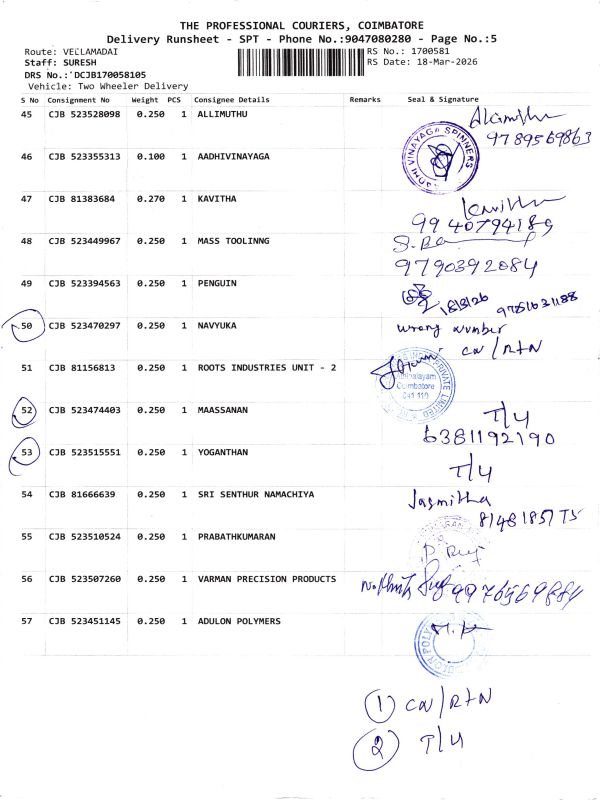 THE PROFESSIONAL COURIERS, COIMBATORE
Delivery Runsheet - SPT - Phone No.:9047080280 - Page No.:5
Route: VELLAMADAI RS No.: 1700581
Staff: SURESH RS Date: 18-Mar-2026
DRS No.: DCJB170058105
Vehicle: Two Wheeler Delivery
S No Consignment No Weight PCS Consignee Details Remarks Seal & Signature
45 CJB 523528098 0.250 1 ALLIMUTHU
9789569863
46 CJB 523355313 0.100 1 AADHIVINAYAGA
VINAYAGA SPINNERS
47 CJB 81383684 0.270 1 KAVITHA Kavitha
9940794189
48 CJB 523449967 0.250 1 MASS TOOLINNG
9790392084
49 CJB 523394563 0.250 1 PENGUIN
18/3/26
50 CJB 523470297 0.250 1 NAVYUKA wrong number
CN/RTN
51 CJB 81156813 0.250 1 ROOTS INDUSTRIES UNIT - 2
Coimbatore
PRIVATE LIMITED
52 CJB 523474403 0.250 1 MAASSANAN T/4
6381192190
53 CJB 523515551 0.250 1 YOGANTHAN T/4
54 CJB 81666639 0.250 1 SRI SENTHUR NAMACHIYA Jasmitha
55 CJB 523510524 0.250 1 PRABATHKUMARAN
56 CJB 523507260 0.250 1 VARMAN PRECISION PRODUCTS
57 CJB 523451145 0.250 1 ADULON POLYMERS
1 CN/RTN
2 T/4